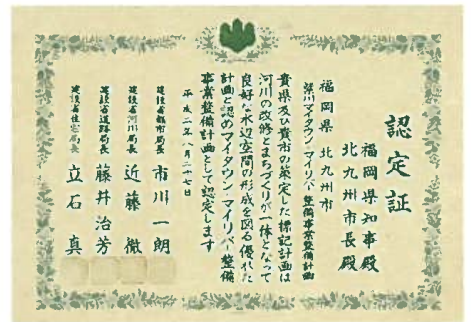 認定証
福岡県知事殿
北九州市長殿
福岡県 北九州市
紫川マイタウン・マイリバー整備事業整備計画
貴県及び貴市の策定した標記計画は
河川の改修とまちづくりが一体となって
良好な水辺空間の形成を図る優れた
計画と認めマイタウン・マイリバー整備
事業整備計画として認定します
平成二年八月二十七日
建設省都市局長 市川一朗
建設省河川局長 近藤徹
建設省道路局長 藤井治芳
建設省住宅局長 立石真